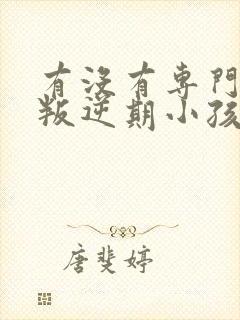 有沒有専門
叛逆期小孩
唐斐婷